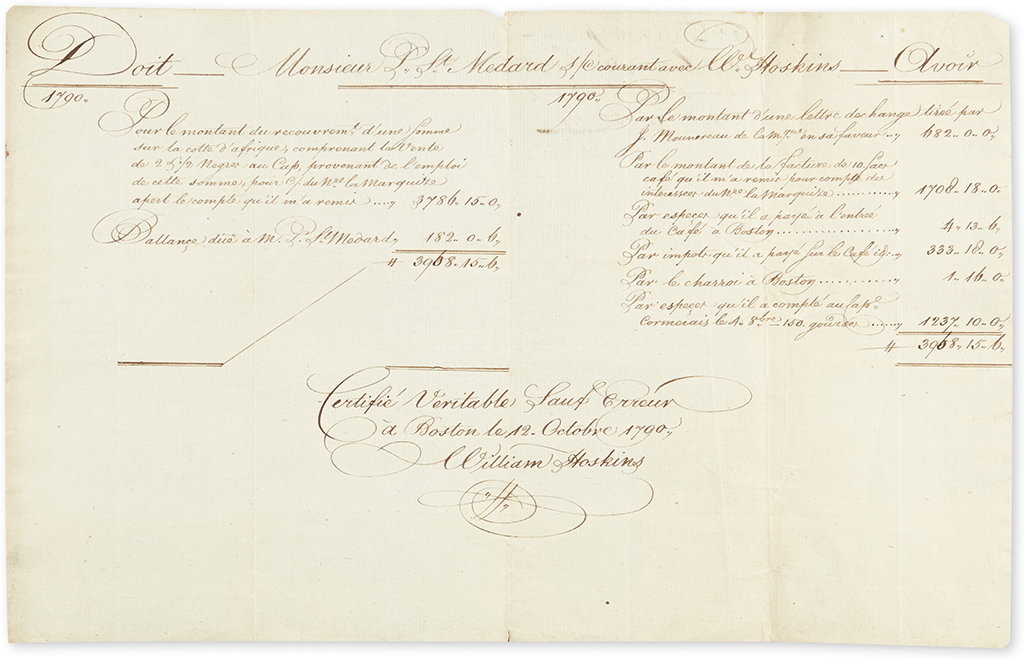 Doit — Monsieur P. St. Medard s/c courant avec Wm. Hoskins — Avoir
1790.. 1790..
Pour le montant du recouvremt. d'une somme
sur la cotte d'afrique, comprenant la Vente
de 2 Negres au Cap, provenant de l'emploi
de cette somme, pour C/. du Nre. la Marquise
apert le compte qu'il m'a remis ..... 3786.. 15.. 0..
Ballance düe à Mr. P. St. Medard.. 182.. 0.. 6..
# 3968.. 15.. 6..
Par le montant d'une lettre deschange tirée par
J. Mounereau de la Mque. en sa faveur .... 682.. 0.. 0..
Par le montant de la facture de 10 sacs
café qu'il m'a remis pour compte des
interessés du Nre. la Marquise .......... 1708.. 18.. 0..
Par especes qu'il a payé à l'entrée
du Café à Boston .................... 4.. 13.. 6..
Par impots qu'il a payé sur le Café id... 333.. 18.. 0..
Par le charroi à Boston ............ 1.. 16.. 0..
Par especes qu'il a compté au Cape.
Cormerais le 4.. 8bre. — 150. gourdes ...... 1237.. 10.. 0..
# 3968.. 15.. 6..
Certifié Véritable Sauf Erreur
à Boston le 12.. Octobre 1790..
William Hoskins